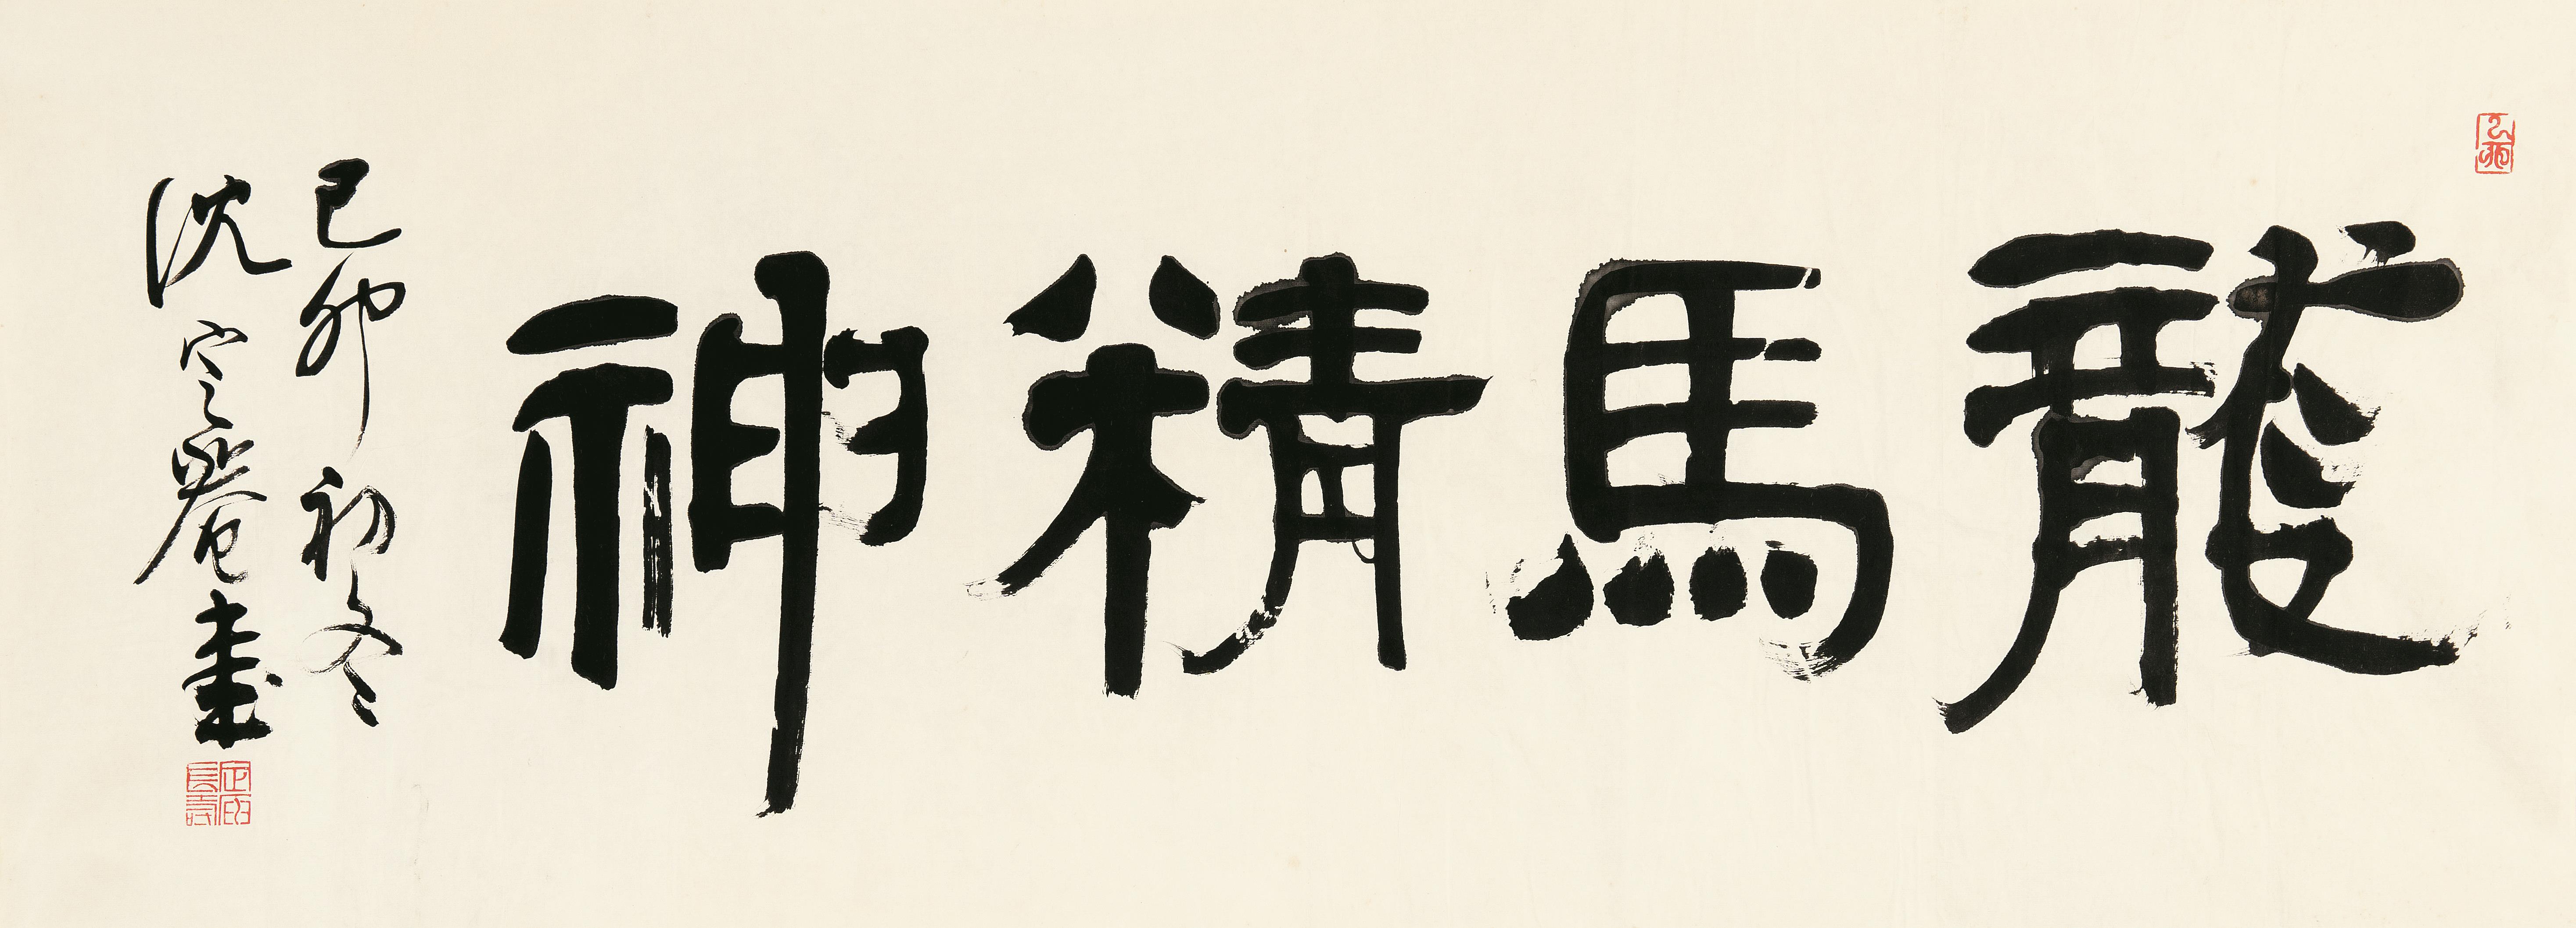 龍馬精神
己卯初冬
沈定庵書